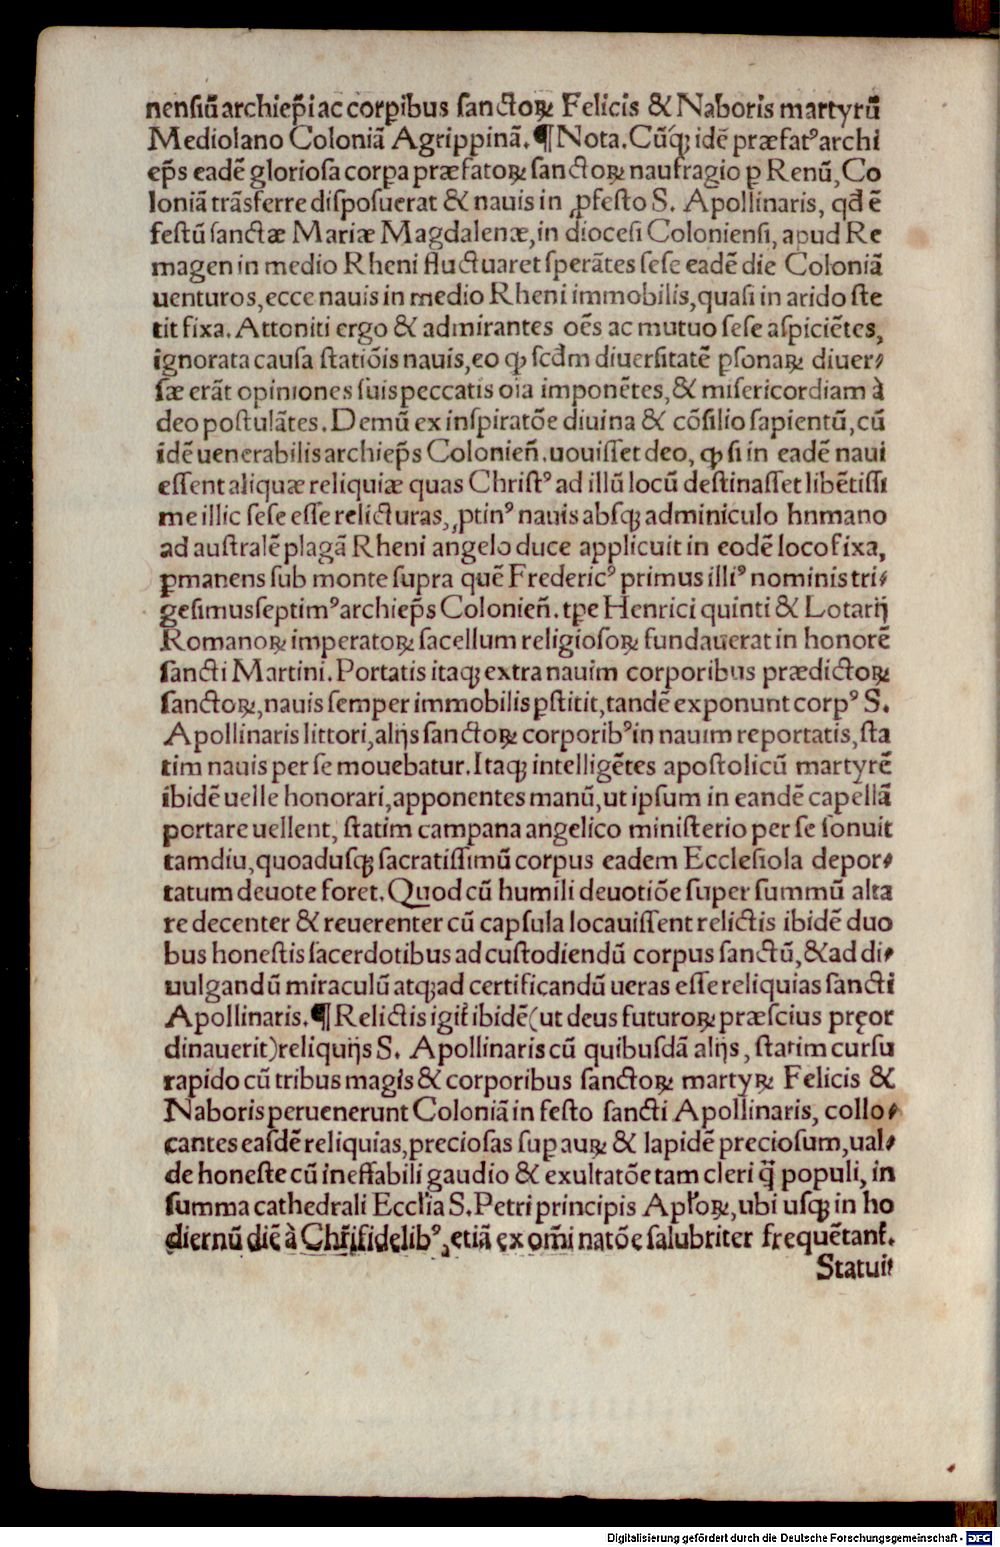 nensiū archiep̄i ac corꝑibus sanctoꝝ Felicis & Naboris martyrū
Mediolano Coloniā Agrippinā. ¶ Nota. Cūqꝫ idē præfatꝰ archi
ep̄s eadē gloriosa corꝑa præfatoꝝ sanctoꝝ naufragio ꝑ Renū, Co
loniā trāsferre disposuerat & nauis in ꝓfesto S. Apollinaris, qđ ē
festū sanctæ Mariæ Magdalenæ, in diocesi Coloniensi, apud Re
magen in medio Rheni fluctuaret sperātes sese eadē die Coloniā
uenturos, ecce nauis in medio Rheni immobilis, quasi in arido ste
tit fixa. Attoniti ergo & admirantes oēs ac mutuo sese aspiciētes,
ignorata causa statiōis nauis, eo ꝙ scd̄m diuersitatē ꝑsonaꝝ diuer⸗
sæ erāt opiniones suis peccatis oīa imponētes, & misericordiam à
deo postulātes. Demū ex inspiratōe diuina & cōsilio sapientū, cū
idē uenerabilis archiep̄s Colonien̄. uouisset deo, ꝙ si in eadē naui
essent aliquæ reliquiæ quas Christꝰ ad illū locū destinasset libētissi
me illic sese esse relicturas, ꝓtinꝰ nauis absqꝫ adminiculo hnmano
ad australē plagā Rheni angelo duce applicuit in eodē loco fixa,
ꝑmanens sub monte supra quē Fredericꝰ primus illiꝰ nominis tri⸗
gesimusseptimꝰ archiep̄s Colonien̄. tꝑe Henrici quinti & Lotarĳ
Romanoꝝ imperatoꝝ sacellum religiosoꝝ fundauerat in honorē
sancti Martini. Portatis itaqꝫ extra nauim corporibus prædictoꝝ
sanctoꝝ, nauis semper immobilis ꝑstitit, tandē exponunt corpꝰ S.
Apollinaris littori, alĳs sanctoꝝ corporibꝰ in nauim reportatis, sta
tim nauis per se mouebatur. Itaqꝫ intelligētes apostolicū martyrē
ibidē uelle honorari, apponentes manū, ut ipsum in eandē capellā
portare uellent, statim campana angelico ministerio per se sonuit
tamdiu, quoadusqꝫ sacratissimū corpus eadem Ecclesiola depor⸗
tatum deuote foret. Quod cū humili deuotiōe super summū alta
re decenter & reuerenter cū capsula locauissent relictis ibidē duo
bus honestis sacerdotibus ad custodiendū corpus sanctū, & ad di⸗
uulgandū miraculū atqꝫ ad certificandū ueras esse reliquias sancti
Apollinaris. ¶ Relictis igit̄ ibidē (ut deus futuroꝝ præscius pręor
dinauerit) reliquĳs S. Apollinaris cū quibusdā alĳs, statim cursu
rapido cū tribus magis & corporibus sanctoꝝ martyꝝ Felicis &
Naboris peruenerunt Coloniā in festo sancti Apollinaris, collo⸗
cantes easdē reliquias, preciosas suꝑ auꝝ & lapidē preciosum, ual⸗
de honeste cū ineffabili gaudio & exultatōe tam cleri q̄ populi, in
summa cathedrali Eccl̄ia S. Petri principis Apl̄oꝝ, ubi usqꝫ in ho
diernū diē à Chr̄ifidelibꝰ, etiā ex om̄i natōe salubriter frequētant̄.
Statuit
Digitalisierung gefördert durch die Deutsche Forschungsgemeinschaft - DFG